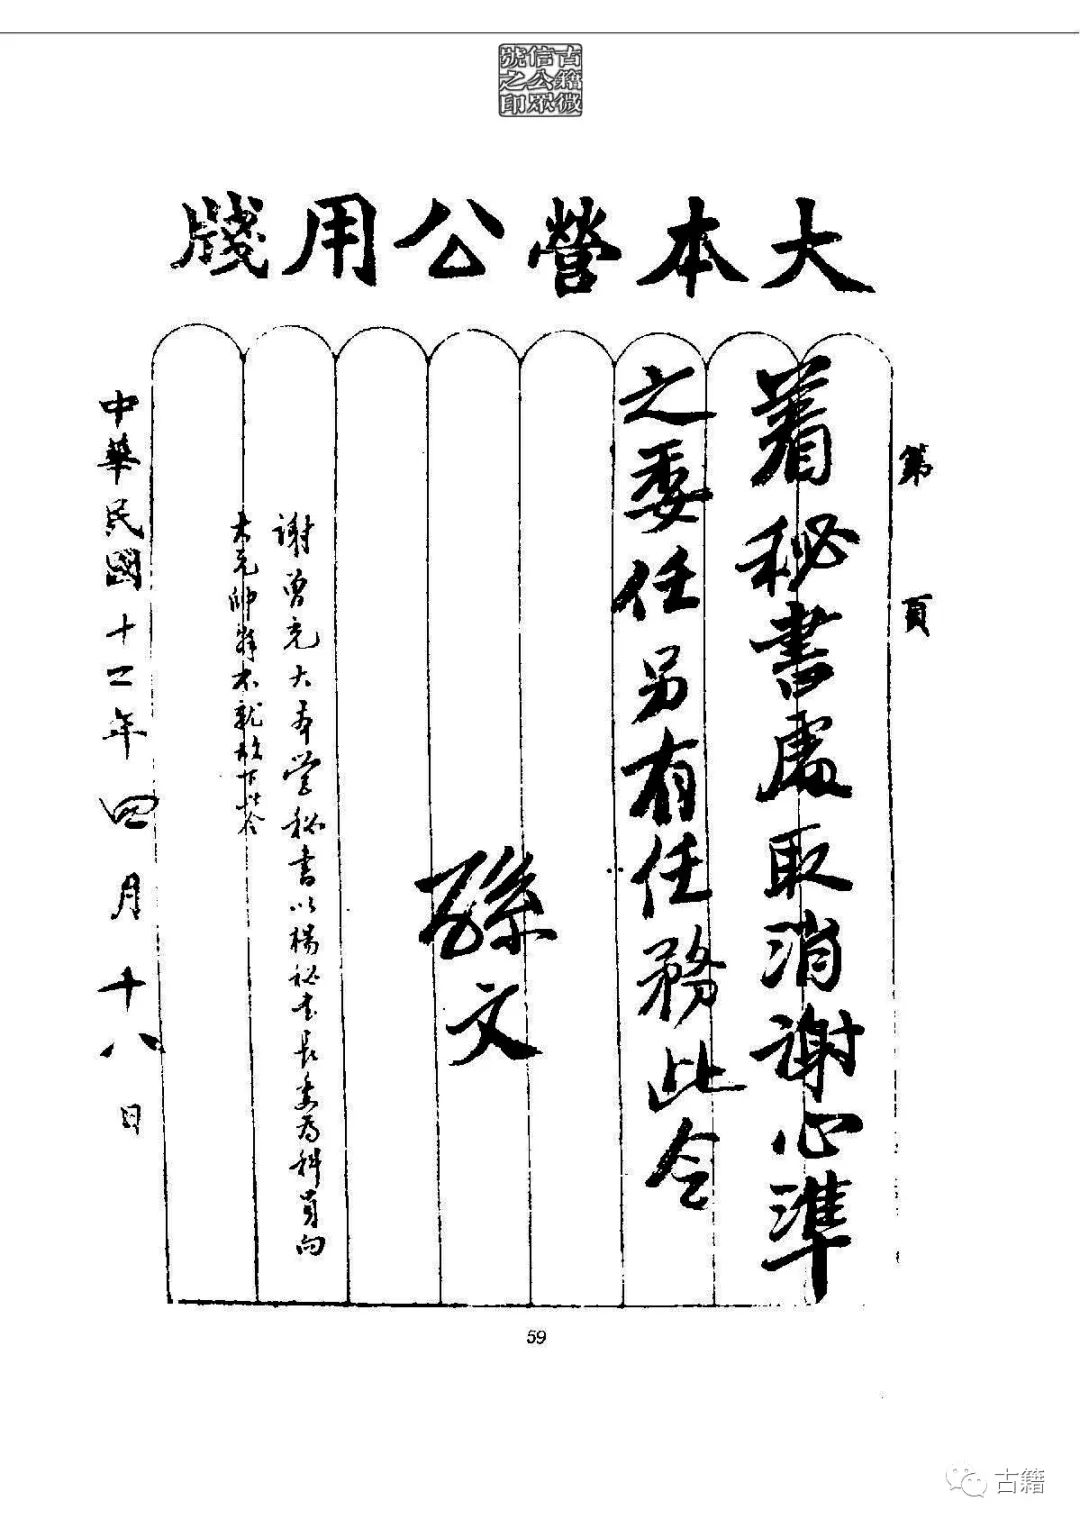 古籍微
信公眾
號之印
大本營公用牋
第 頁
着秘書處取消謝心準
之委任另有任務此令
孫文
謝曾充大本營秘書以楊祕書長委為科員向
大元帥辭不就故下此令
中華民國十二年四月十八日
59
古籍